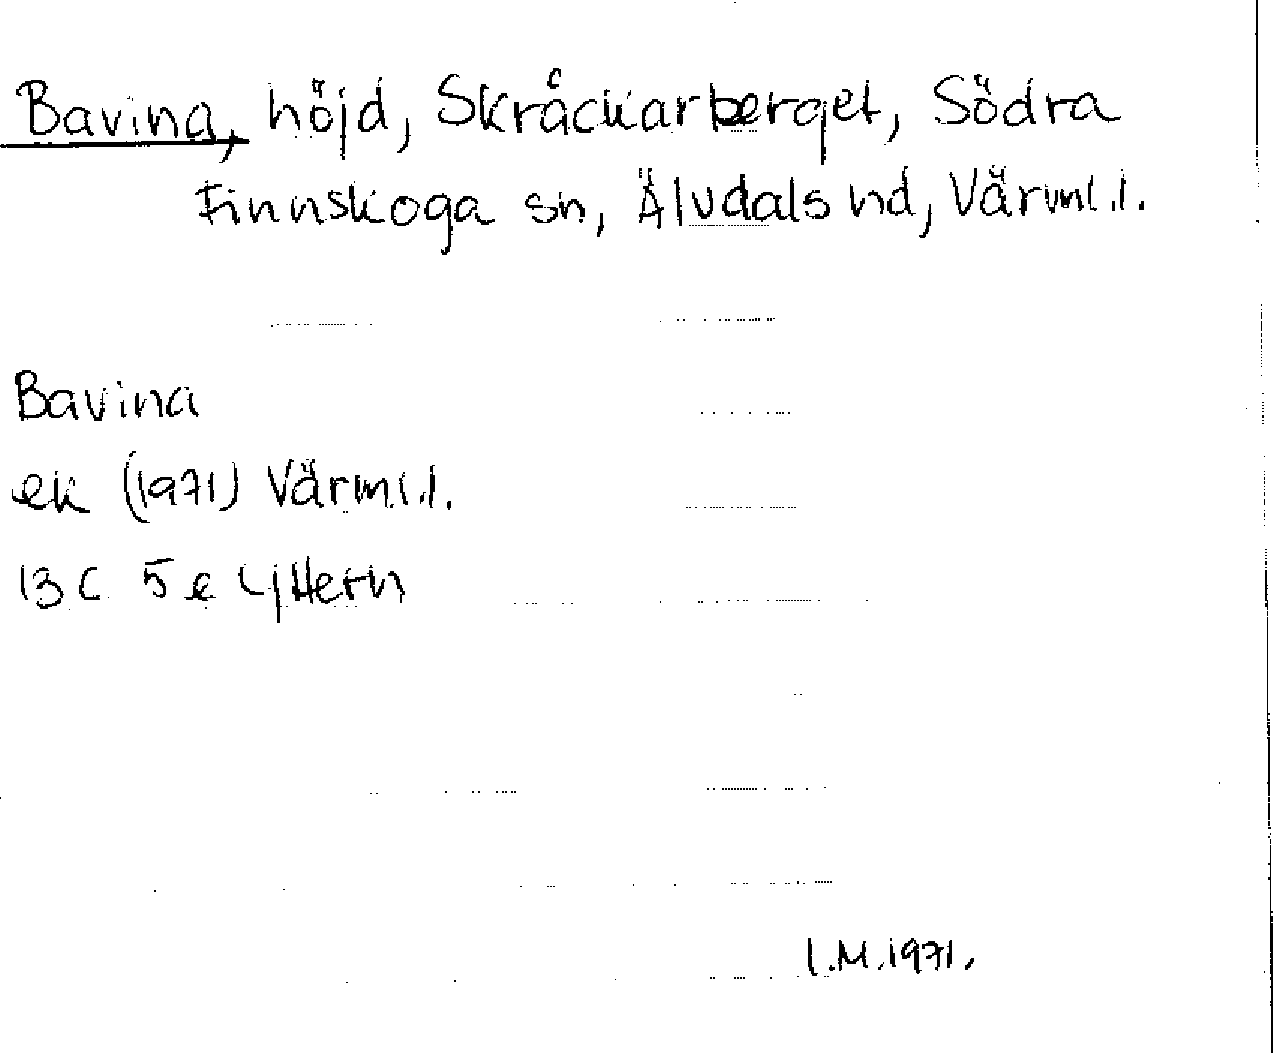 Bavina, höjd, Skråckarberget, Södra
Finnskoga sn, Älvdals hd, Värml. l.
Bavina
ek (1971) Värml. l.
13 C 5 e
I.M. 1971.